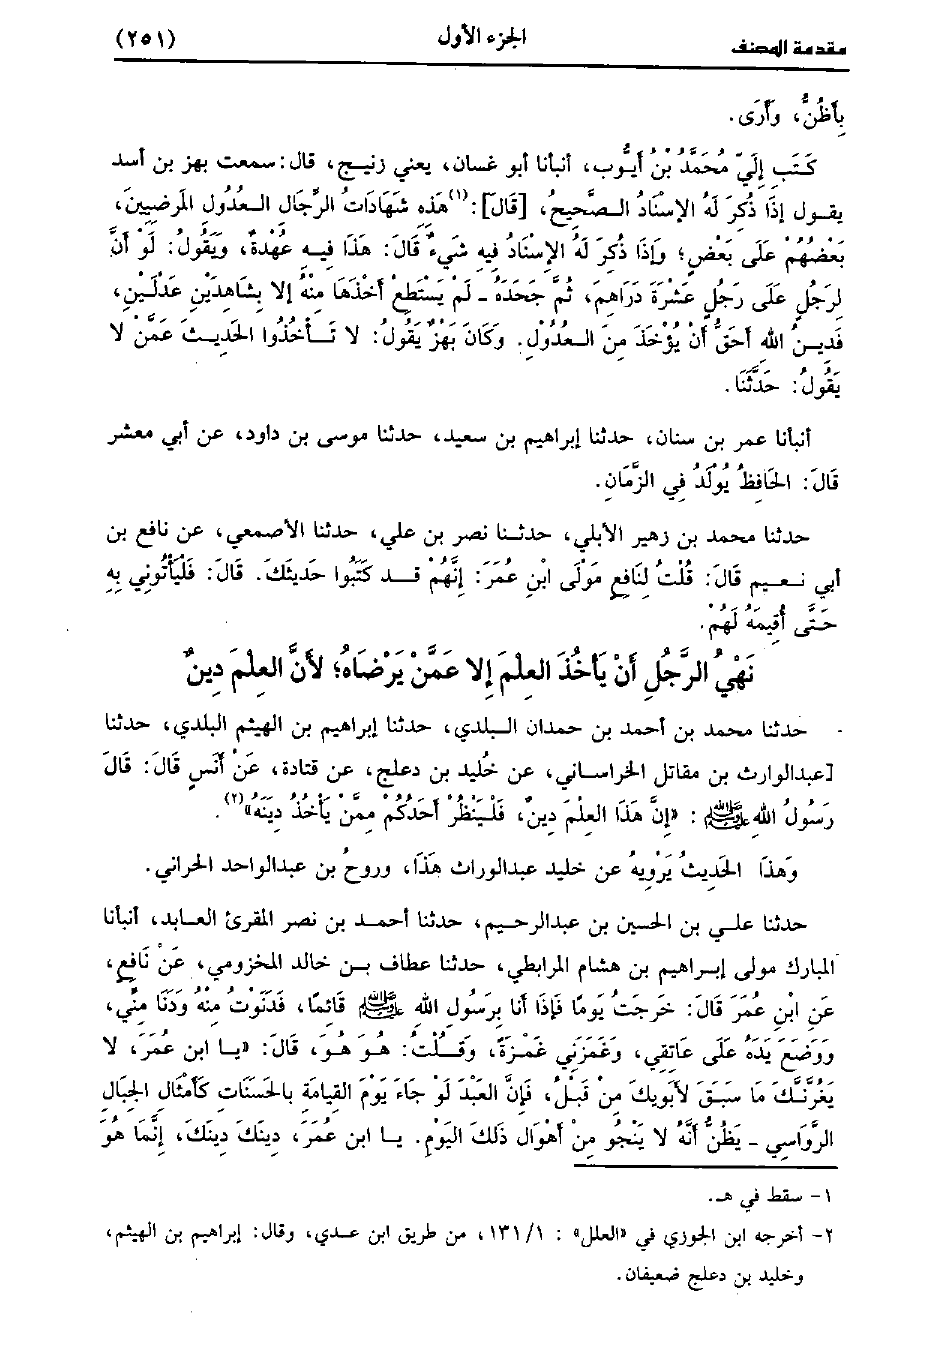 مقدمة المصنف الجزء الأول (٢٥١)
بِأَظُنُّ، وَأَرَى.
كَتَب إِلَيّ مُحَمَّدُ بْنُ أَيُّوب، أنبأنا أبو غسان، يعني زنيج، قال: سمعت بهز بن أسد
يقول إِذَا ذُكِرَ لَهُ الإِسْنَادُ الصَّحِيحُ، [قَالَ]:(١) هَذِهِ شَهَادَاتُ الرِّجَالِ العُدُولِ المَرضيين،
بَعْضُهُمْ عَلَى بَعْضٍ؛ وَإِذَا ذُكِرَ لَهُ الإِسْنَادُ فِيهِ شَيءٌ قَالَ: هَذَا فِيهِ عُهْدَةٌ، وَيَقُولُ: لَوْ أَنَّ
لِرَجُلٍ عَلَى رَجُلٍ عَشْرَةَ دَرَاهِمَ، ثُمَّ جَحَدَهُ - لَمْ يَسْتَطِعْ أَخْذَهَا مِنْهُ إِلا بِشَاهِدَيْنِ عَدْلَينِ،
فَدِينُ الله أَحَقُّ أَنْ يُؤْخَذَ مِنَ العُدُولِ. وَكَانَ بَهْزٌ يَقُولُ: لا تَأْخُذُوا الحَدِيثَ عَمَّنْ لا
يَقُولُ: حَدَّثَنَا.
أنبأنا عمر بن سنان، حدثنا إبراهيم بن سعيد، حدثنا موسى بن داود، عن أبي معشر
قَالَ: الحَافِظُ يُولَدُ فِي الزَّمَانِ.
حدثنا محمد بن زهير الأبلي، حدثنا نصر بن علي، حدثنا الأصمعي، عن نافع بن
أبي نعيم قَالَ: قُلْتُ لِنَافِعٍ مَوْلَى ابنِ عُمَرَ: إِنَّهُمْ قَد كَتَبُوا حَدِيثَكَ. قَالَ: فَلْيَأْتُونِي بِهِ
حَتَّى أُقِيمَهُ لَهُمْ.
نَهْيُ الرَّجُلِ أَنْ يَأْخُذَ العِلْمَ إِلا عَمَّنْ يَرْضَاهُ؛ لأَنَّ العِلْمَ دِينٌ
حدثنا محمد بن أحمد بن حمدان البلدي، حدثنا إبراهيم بن الهيثم البلدي، حدثنا
[عبدالوارث بن مقاتل الخراساني، عن خليد بن دعلج، عن قتادة، عَنْ أَنَسٍ قَالَ: قَالَ
رَسُولُ اللهِ ﷺ : «إِنَّ هَذَا العِلْمَ دِينٌ، فَلْيَنْظُرْ أَحَدُكُمْ مِمَّنْ يَأْخُذُ دِينَهُ»(٢).
وَهَذَا الحَدِيثُ يَرْوِيهُ عن خليد عبدالوراث هَذَا، وروحُ بن عبدالواحد الحراني.
حدثنا علي بن الحسين بن عبدالرحيم، حدثنا أحمد بن نصر المقرئ العابد، أنبأنا
المبارك مولى إبراهيم بن هشام المرابطي، حدثنا عطاف بن خالد المخزومي، عَنْ نَافِعٍ،
عَنِ ابْنِ عُمَرَ قَالَ: خَرَجتُ يَومًا فَإِذَا أَنَا بِرَسُولِ الله ﷺ قَائِمًا، فَدَنَوْتُ مِنْهُ وَدَنَا مِنِّي،
وَوَضَعَ يَدَهُ عَلَى عَاتِقِي، وَغَمَزَنِي غَمْزَةً، وَقُلْتُ: هُوَ هُوَ، قَالَ: «يَا ابن عُمَرَ، لا
يَغُرَّنَّكَ مَا سَبَقَ لأَبَوَيكَ مِنْ قَبْلُ، فَإِنَّ العَبْدَ لَوْ جَاءَ يَوْمَ القِيَامَةِ بِالحَسَنَاتِ كَأَمْثَالِ الجِبَالِ
الرَّوَاسِي - يَظُنُّ أَنَّهُ لا يَنْجُو مِنْ أَهْوَالِ ذَلِكَ اليَوْمِ. يَا ابن عُمَرَ، دِينَكَ دِينَكَ، إِنَّمَا هُوَ
١- سقط في هـ.
٢- أخرجه ابن الجوزي في «العلل» : ١٣١/١، من طريق ابن عدي، وقال: إبراهيم بن الهيثم،
وخليد بن دعلج ضعيفان.